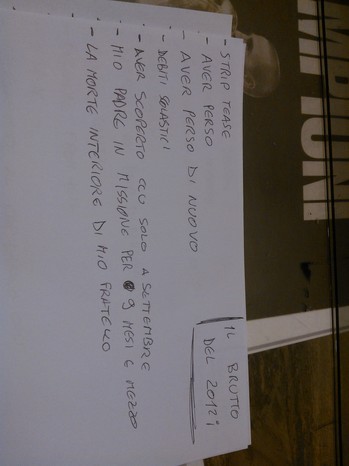 IL BRUTTO
DEL 2012:
- STRIP TEASE
- AVER PERSO
- AVER PERSO DI NUOVO
- DEBITI SCOLASTICI
- AVER SCOPERTO CCU SOLO A SETTEMBRE
- MIO PADRE IN MISSIONE PER 9 MESI E MEZZO
- LA MORTE INTERIORE DI MIO FRATELLO
MPIONI